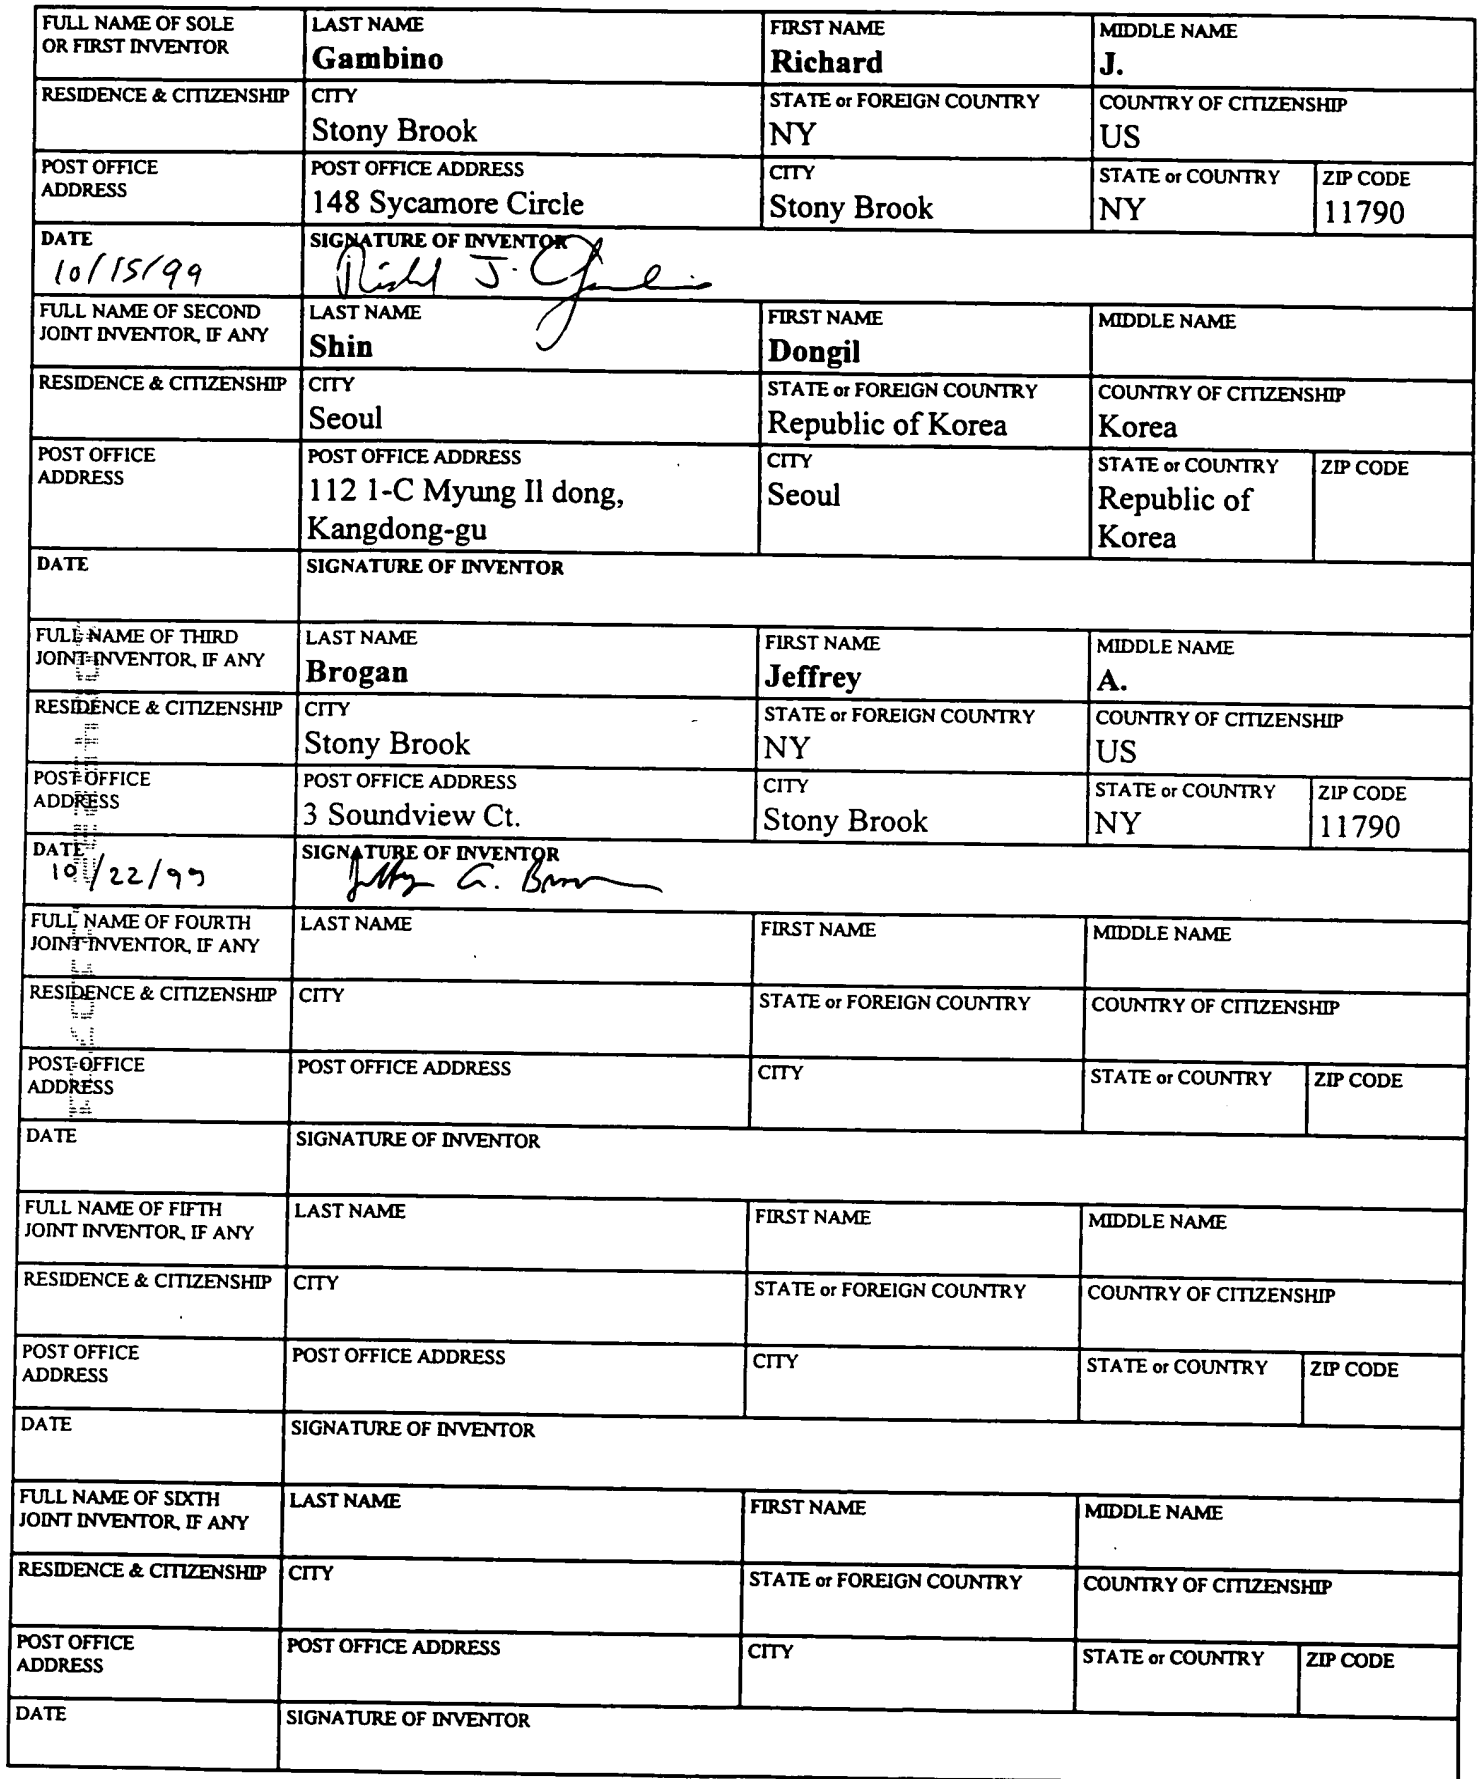 FULL NAME OF SOLE
OR FIRST INVENTOR
LAST NAME
Gambino
FIRST NAME
Richard
MIDDLE NAME
J.
RESIDENCE & CITIZENSHIP
CITY
Stony Brook
STATE or FOREIGN COUNTRY
NY
COUNTRY OF CITIZENSHIP
US
POST OFFICE
ADDRESS
POST OFFICE ADDRESS
148 Sycamore Circle
CITY
Stony Brook
STATE or COUNTRY
NY
ZIP CODE
11790
DATE
10/15/99
SIGNATURE OF INVENTOR
Richd J. Gambino
FULL NAME OF SECOND
JOINT INVENTOR, IF ANY
LAST NAME
Shin
FIRST NAME
Dongil
MIDDLE NAME
RESIDENCE & CITIZENSHIP
CITY
Seoul
STATE or FOREIGN COUNTRY
Republic of Korea
COUNTRY OF CITIZENSHIP
Korea
POST OFFICE
ADDRESS
POST OFFICE ADDRESS
112 1-C Myung Il dong,
Kangdong-gu
CITY
Seoul
STATE or COUNTRY
Republic of
Korea
ZIP CODE
DATE
SIGNATURE OF INVENTOR
FULL NAME OF THIRD
JOINT INVENTOR, IF ANY
LAST NAME
Brogan
FIRST NAME
Jeffrey
MIDDLE NAME
A.
RESIDENCE & CITIZENSHIP
CITY
Stony Brook
STATE or FOREIGN COUNTRY
NY
COUNTRY OF CITIZENSHIP
US
POST OFFICE
ADDRESS
POST OFFICE ADDRESS
3 Soundview Ct.
CITY
Stony Brook
STATE or COUNTRY
NY
ZIP CODE
11790
DATE
10/22/99
SIGNATURE OF INVENTOR
A.
FULL NAME OF FOURTH
JOINT INVENTOR, IF ANY
LAST NAME
FIRST NAME
MIDDLE NAME
RESIDENCE & CITIZENSHIP
CITY
STATE or FOREIGN COUNTRY
COUNTRY OF CITIZENSHIP
POST OFFICE
ADDRESS
POST OFFICE ADDRESS
CITY
STATE or COUNTRY
ZIP CODE
DATE
SIGNATURE OF INVENTOR
FULL NAME OF FIFTH
JOINT INVENTOR, IF ANY
LAST NAME
FIRST NAME
MIDDLE NAME
RESIDENCE & CITIZENSHIP
CITY
STATE or FOREIGN COUNTRY
COUNTRY OF CITIZENSHIP
POST OFFICE
ADDRESS
POST OFFICE ADDRESS
CITY
STATE or COUNTRY
ZIP CODE
DATE
SIGNATURE OF INVENTOR
FULL NAME OF SIXTH
JOINT INVENTOR, IF ANY
LAST NAME
FIRST NAME
MIDDLE NAME
RESIDENCE & CITIZENSHIP
CITY
STATE or FOREIGN COUNTRY
COUNTRY OF CITIZENSHIP
POST OFFICE
ADDRESS
POST OFFICE ADDRESS
CITY
STATE or COUNTRY
ZIP CODE
DATE
SIGNATURE OF INVENTOR